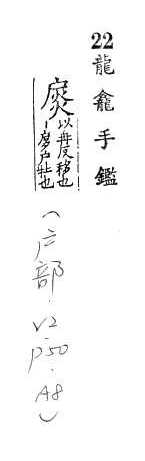 22 龍龕手鑑
扊 以冉反扊也
｜扅戶牡也
(戶部.V2.P50.A8)